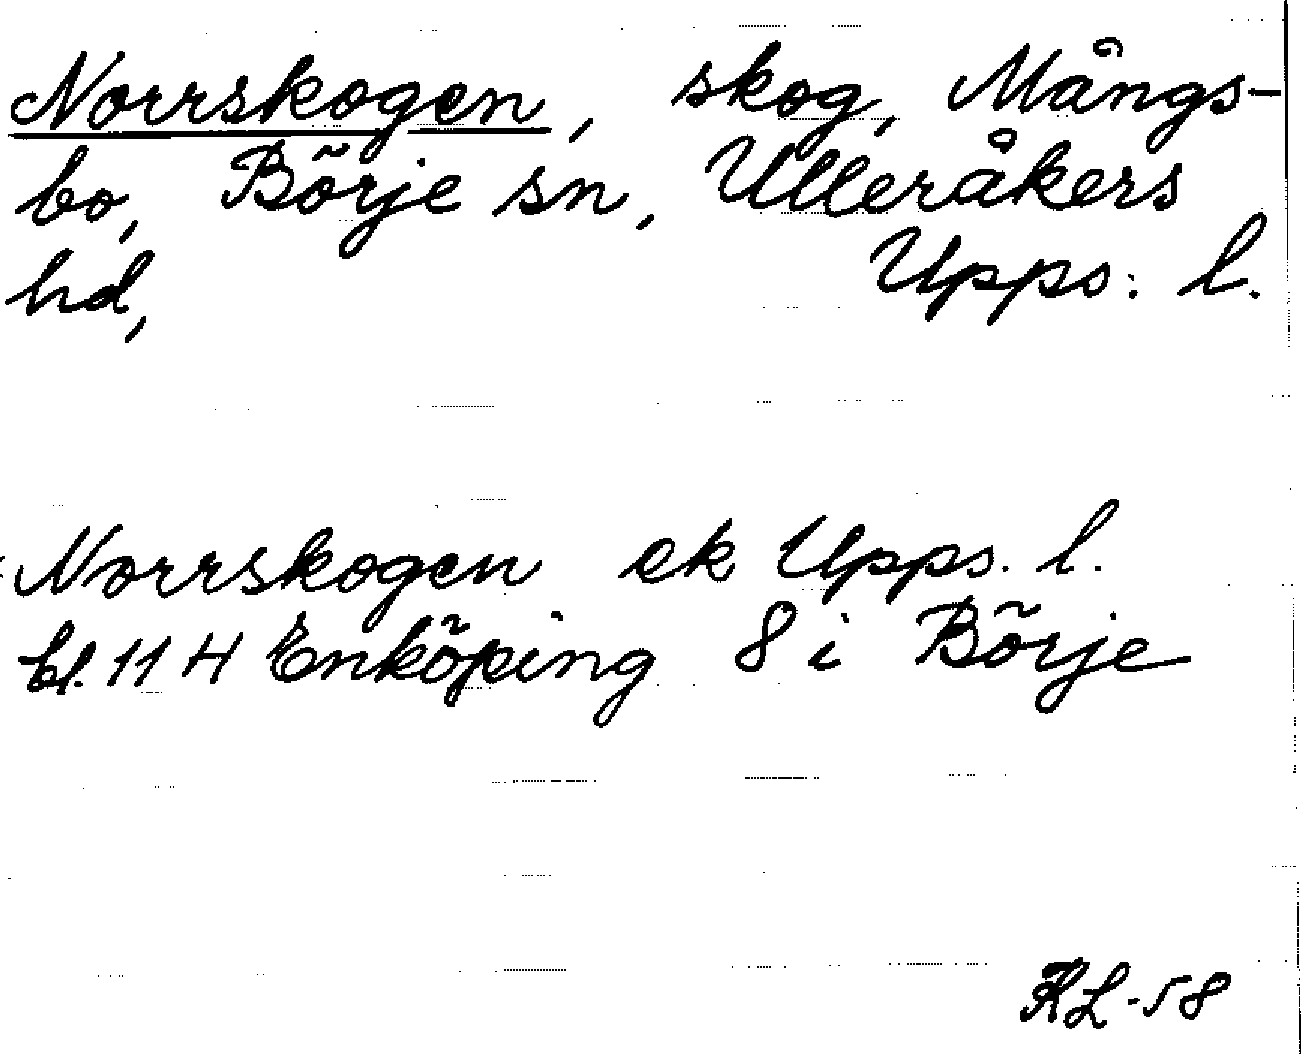 Norrskogen, skog, Mångs-
bo, Börje sn, Ulleråkers
hd, Upps. l.
Norrskogen ek Upps. l.
bl. 114 Enköping 8 i Börje
KL-58